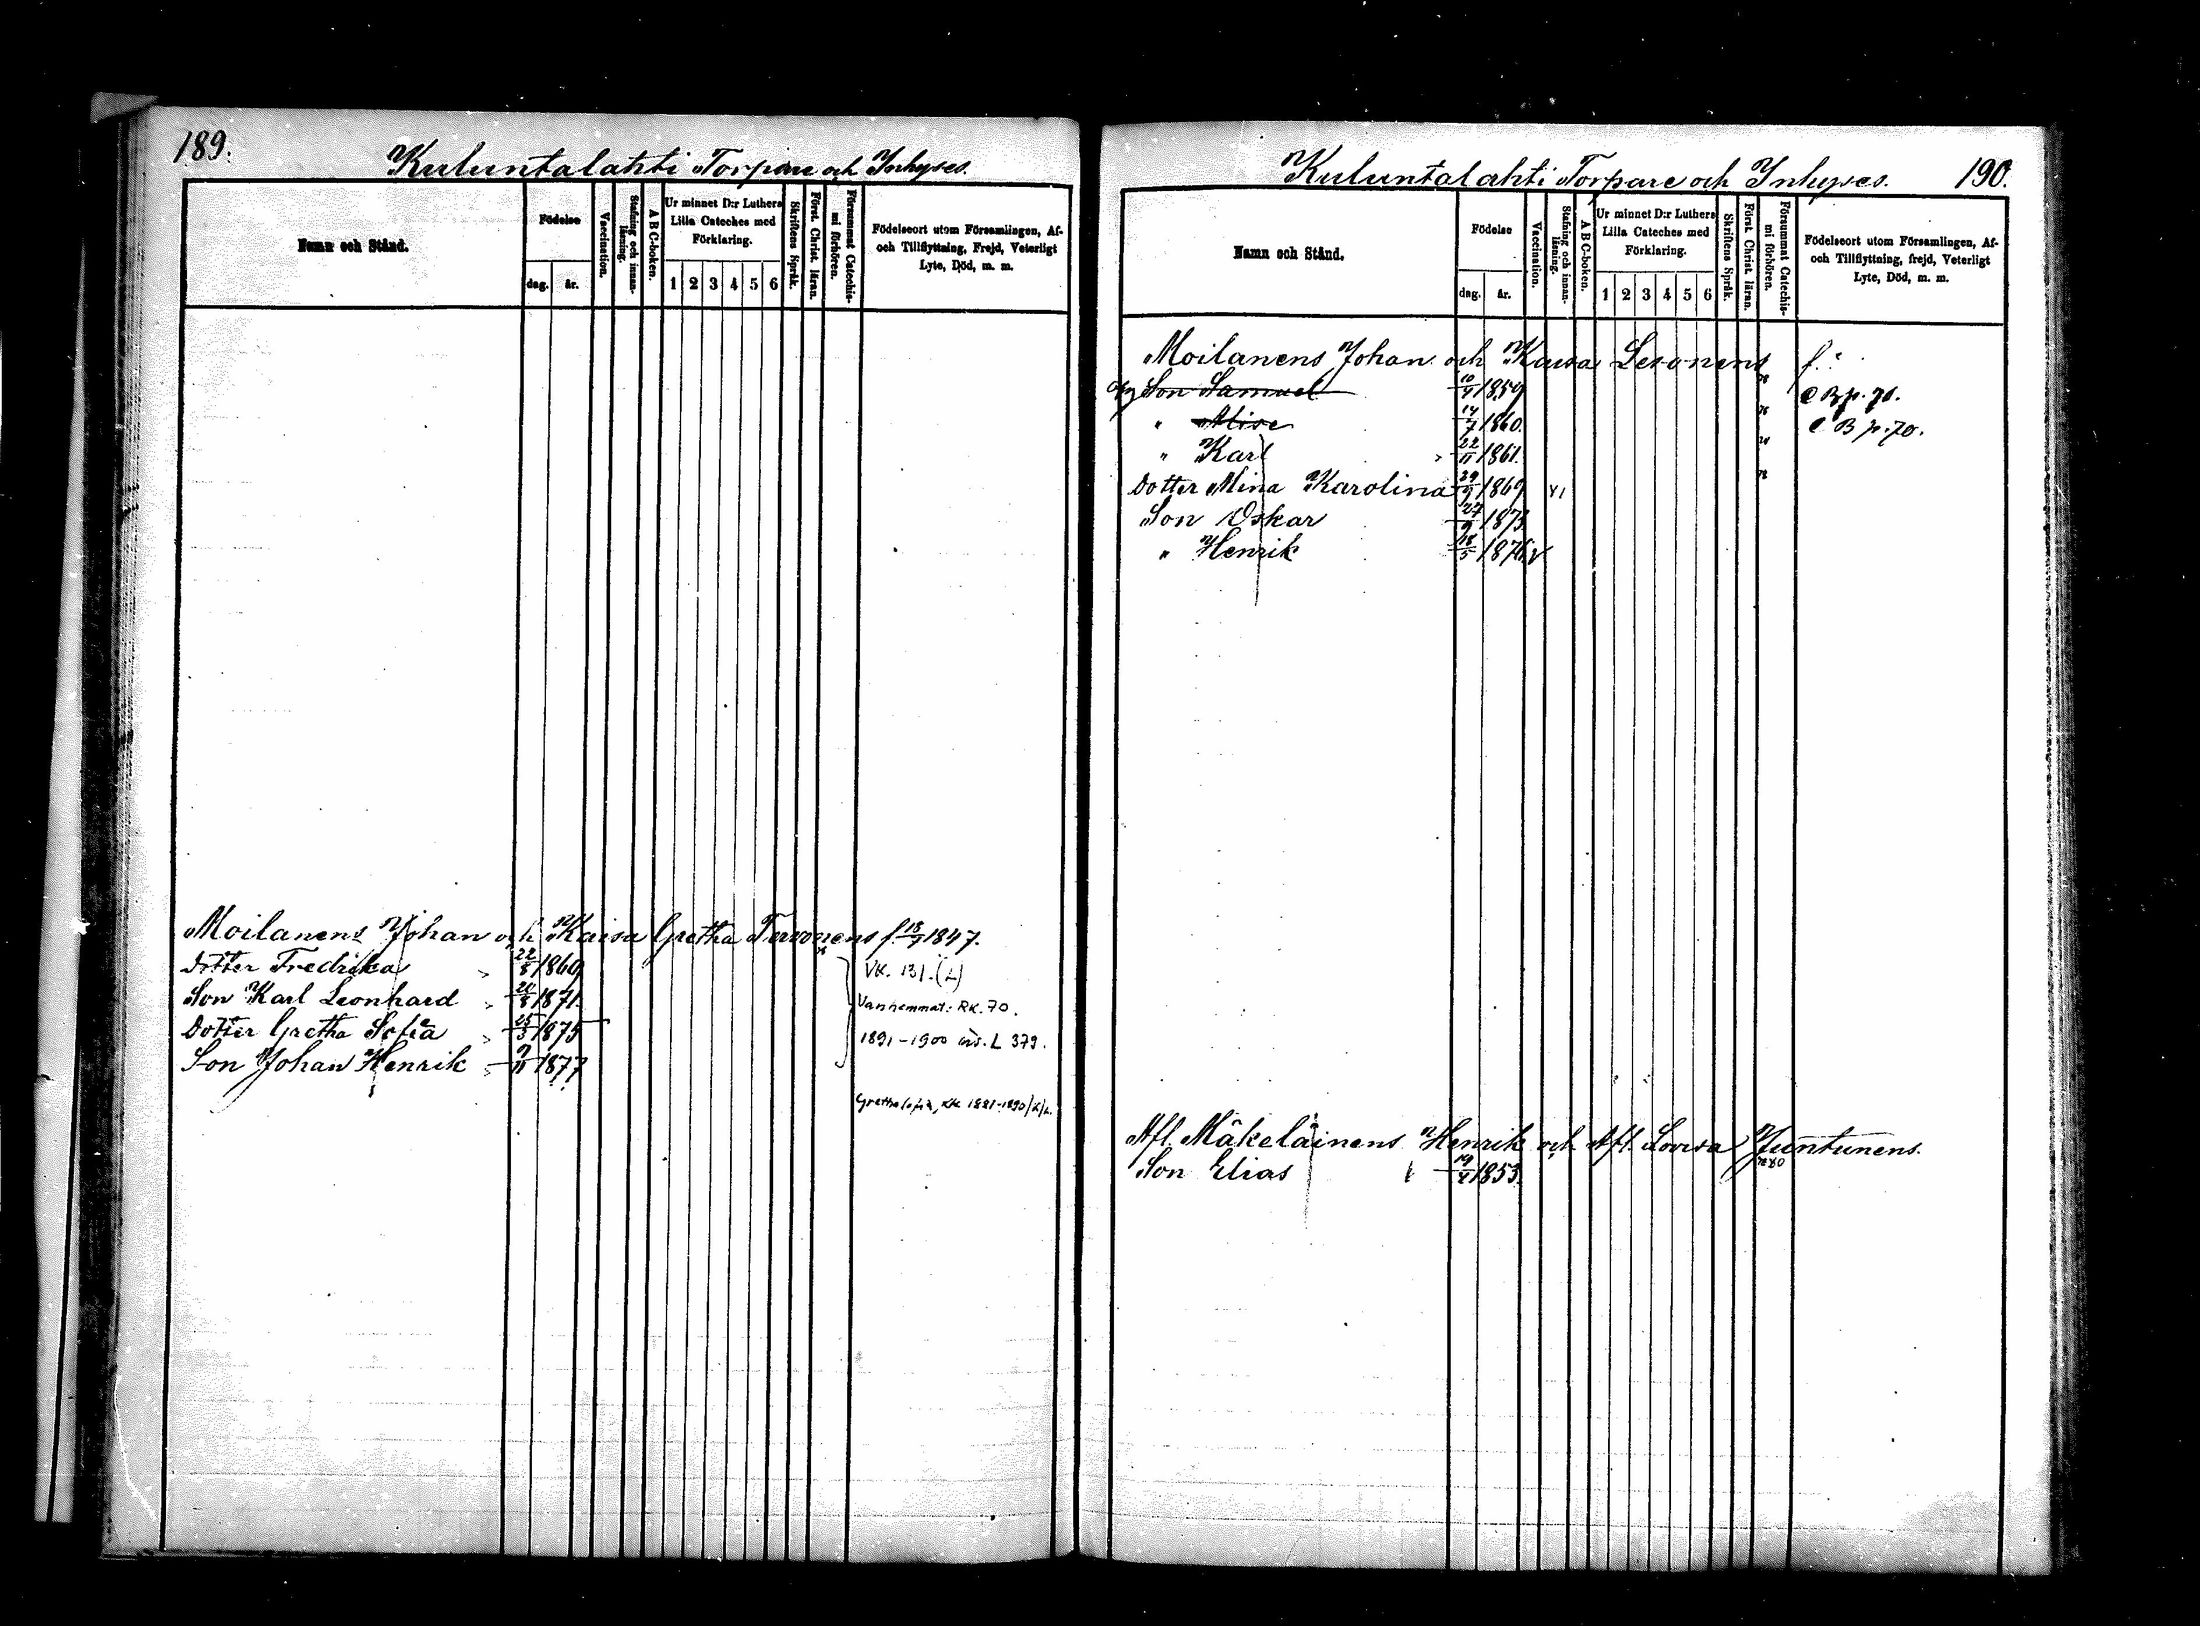 189.
Kuluntalahti Torpare och Inhyses.
Namn och Stånd.
Födelse
dag.
år.
Vaccination.
Stafning och innan-
läsning.
A B C-boken.
Ur minnet D:r Luthers
Lilla Cateches med
Förklaring.
1 2 3 4 5 6
Skriftens Språk.
Först. Christ. läran.
Försummat Catechis-
mi förhören.
Födelseort utom Församlingen, Af-
och Tillflyttning, Frejd, Veterligt
Lyte, Död, m. m.
Moilanens Johan och Kaisa Gretha Tervonens f. 18/7 1847.
Dotter Fredrika 22/8 1869
Son Karl Leonhard 20/8 1871.
Dotter Gretha Sofia 25/3 1875
Son Johan Henrik 9/11 1877
VK. 131. (L)
Vanhemmat: RK. 70.
1891-1900 L 379.
Gretha Sofia, RK 1881-1890
Kuluntalahti Torpare och Inhyses.
190.
Namn och Stånd.
Födelse
dag.
år.
Vaccination.
Stafning och innan-
läsning.
A B C-boken.
Ur minnet D:r Luthers
Lilla Cateches med
Förklaring.
1 2 3 4 5 6
Skriftens Språk.
Först. Christ. läran.
Försummat Catechis-
mi förhören.
Födelseort utom Församlingen, Af-
och Tillflyttning, frejd, Veterligt
Lyte, Död, m. m.
Moilanens Johan och Kaisa Lesonens f.
Son Samuel 10/9 1859 C B p. 70.
" 1860. C B p. 70.
" Karl 22/11 1861.
Dotter Mina Karolina 29/9 1869
Son Oskar 27/9 1873
" Henrik 18/5 1876. v
Afl. Mäkeläinens Henrik och Afl. Lovisa Juntunens.
Son Elias 19/4 1853.